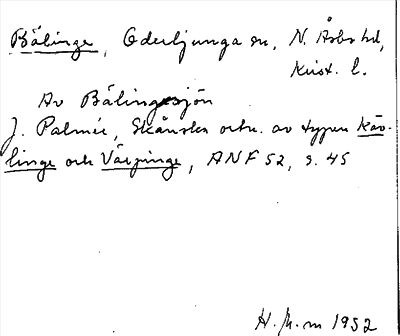 Bälinge, Oderljunga sn, N. Åsbo hd,
Krist. l.
Av Bälingesjön
J. Palmér, Skånska ortn. av typen Käv-
linge och Värpinge, ANF 52, s. 45
H. M-m 1952